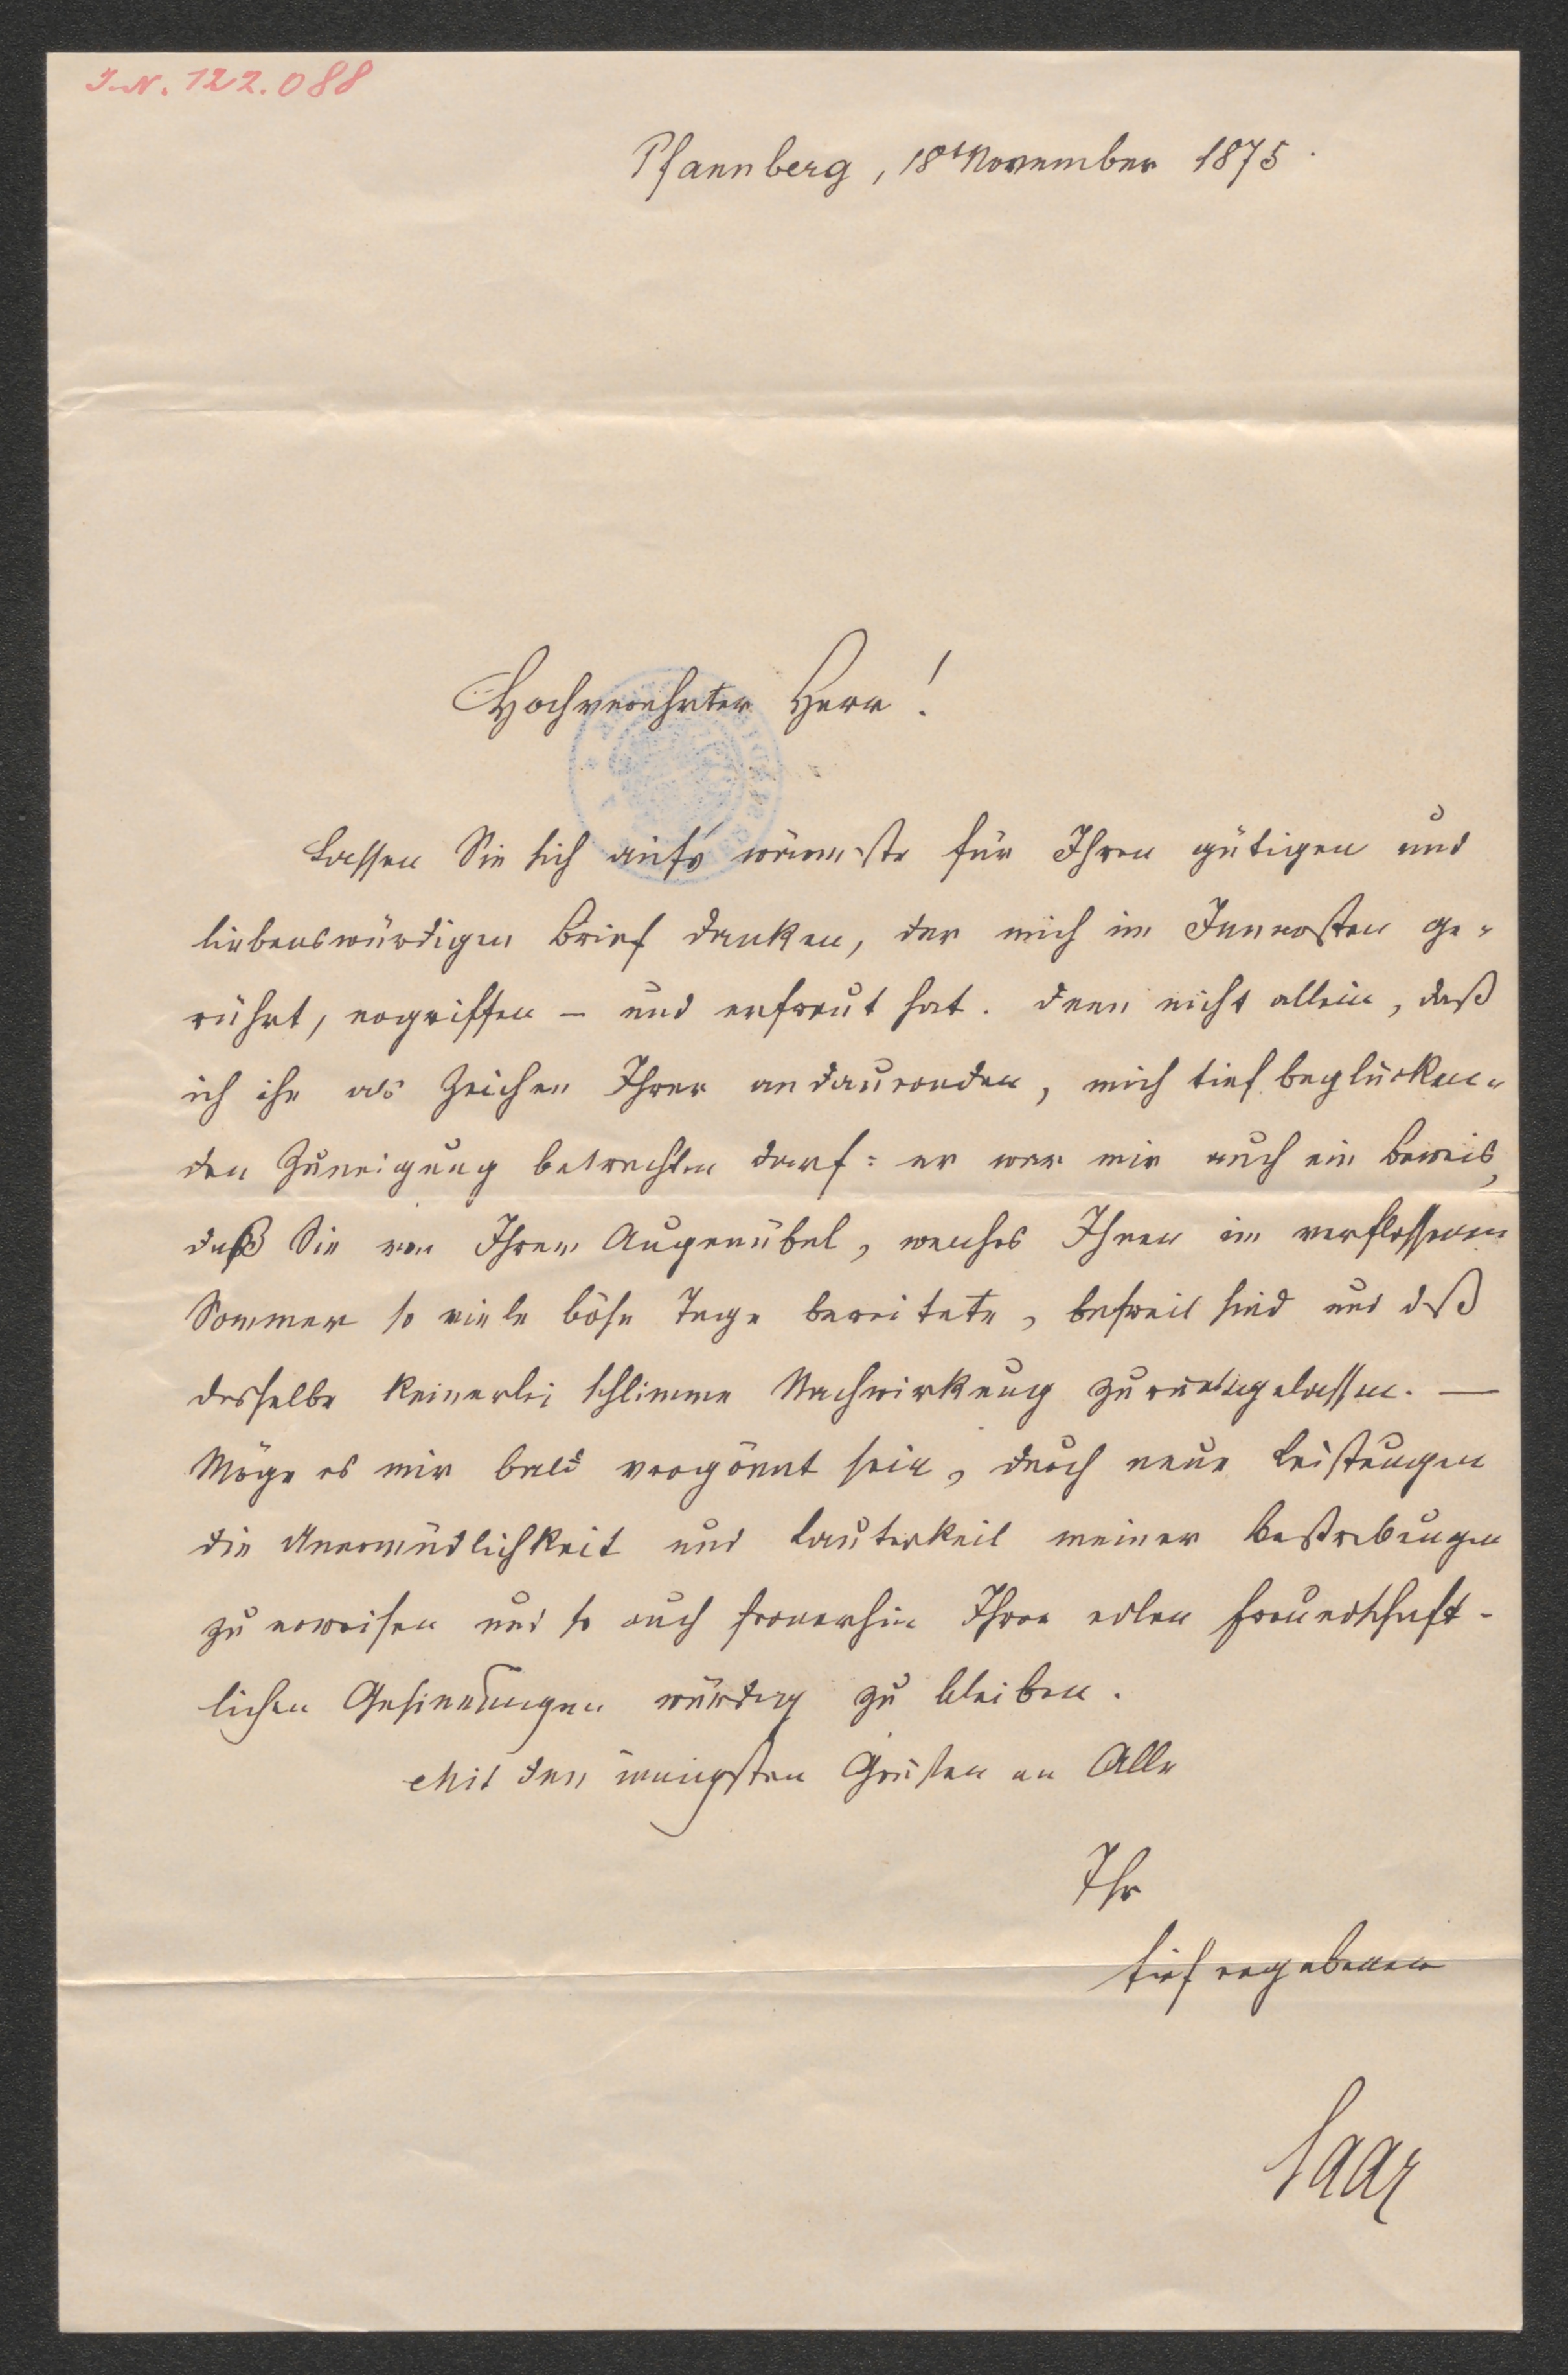 I.N. 122.088
Pfannberg, 18t November 1875.
Hochverehrter Herr!
Lassen Sie sich auf's wärmste für Ihren gütigen und
liebenswürdigen Brief danken, der mich im Innersten ge-
rührt, ergriffen – und erfreut hat. Denn nicht allein, daß
ich ihn als Zeichen Ihrer andauernden, mich tief beglücken-
den Zuneigung betrachten darf: er war mir auch ein Beweis,
daß Sie von Ihrem Augenübel, welches Ihnen im verflossenen
Sommer so viele böse Tage bereitete, befreit sind und daß
dasselbe keinerlei schlimme Nachwirkung zurückgelassen. —
Möge es mir bald vergönnt sein, durch neue Leistungen
die Unermüdlichkeit und Lauterkeit meiner Bestrebungen
zu erweisen und so auch fernerhin Ihrer edlen freundschaft-
lichen Gesinnungen würdig zu bleiben.
Mit den innigsten Grüßen an Alle
Ihr
tiefergebener
Saar